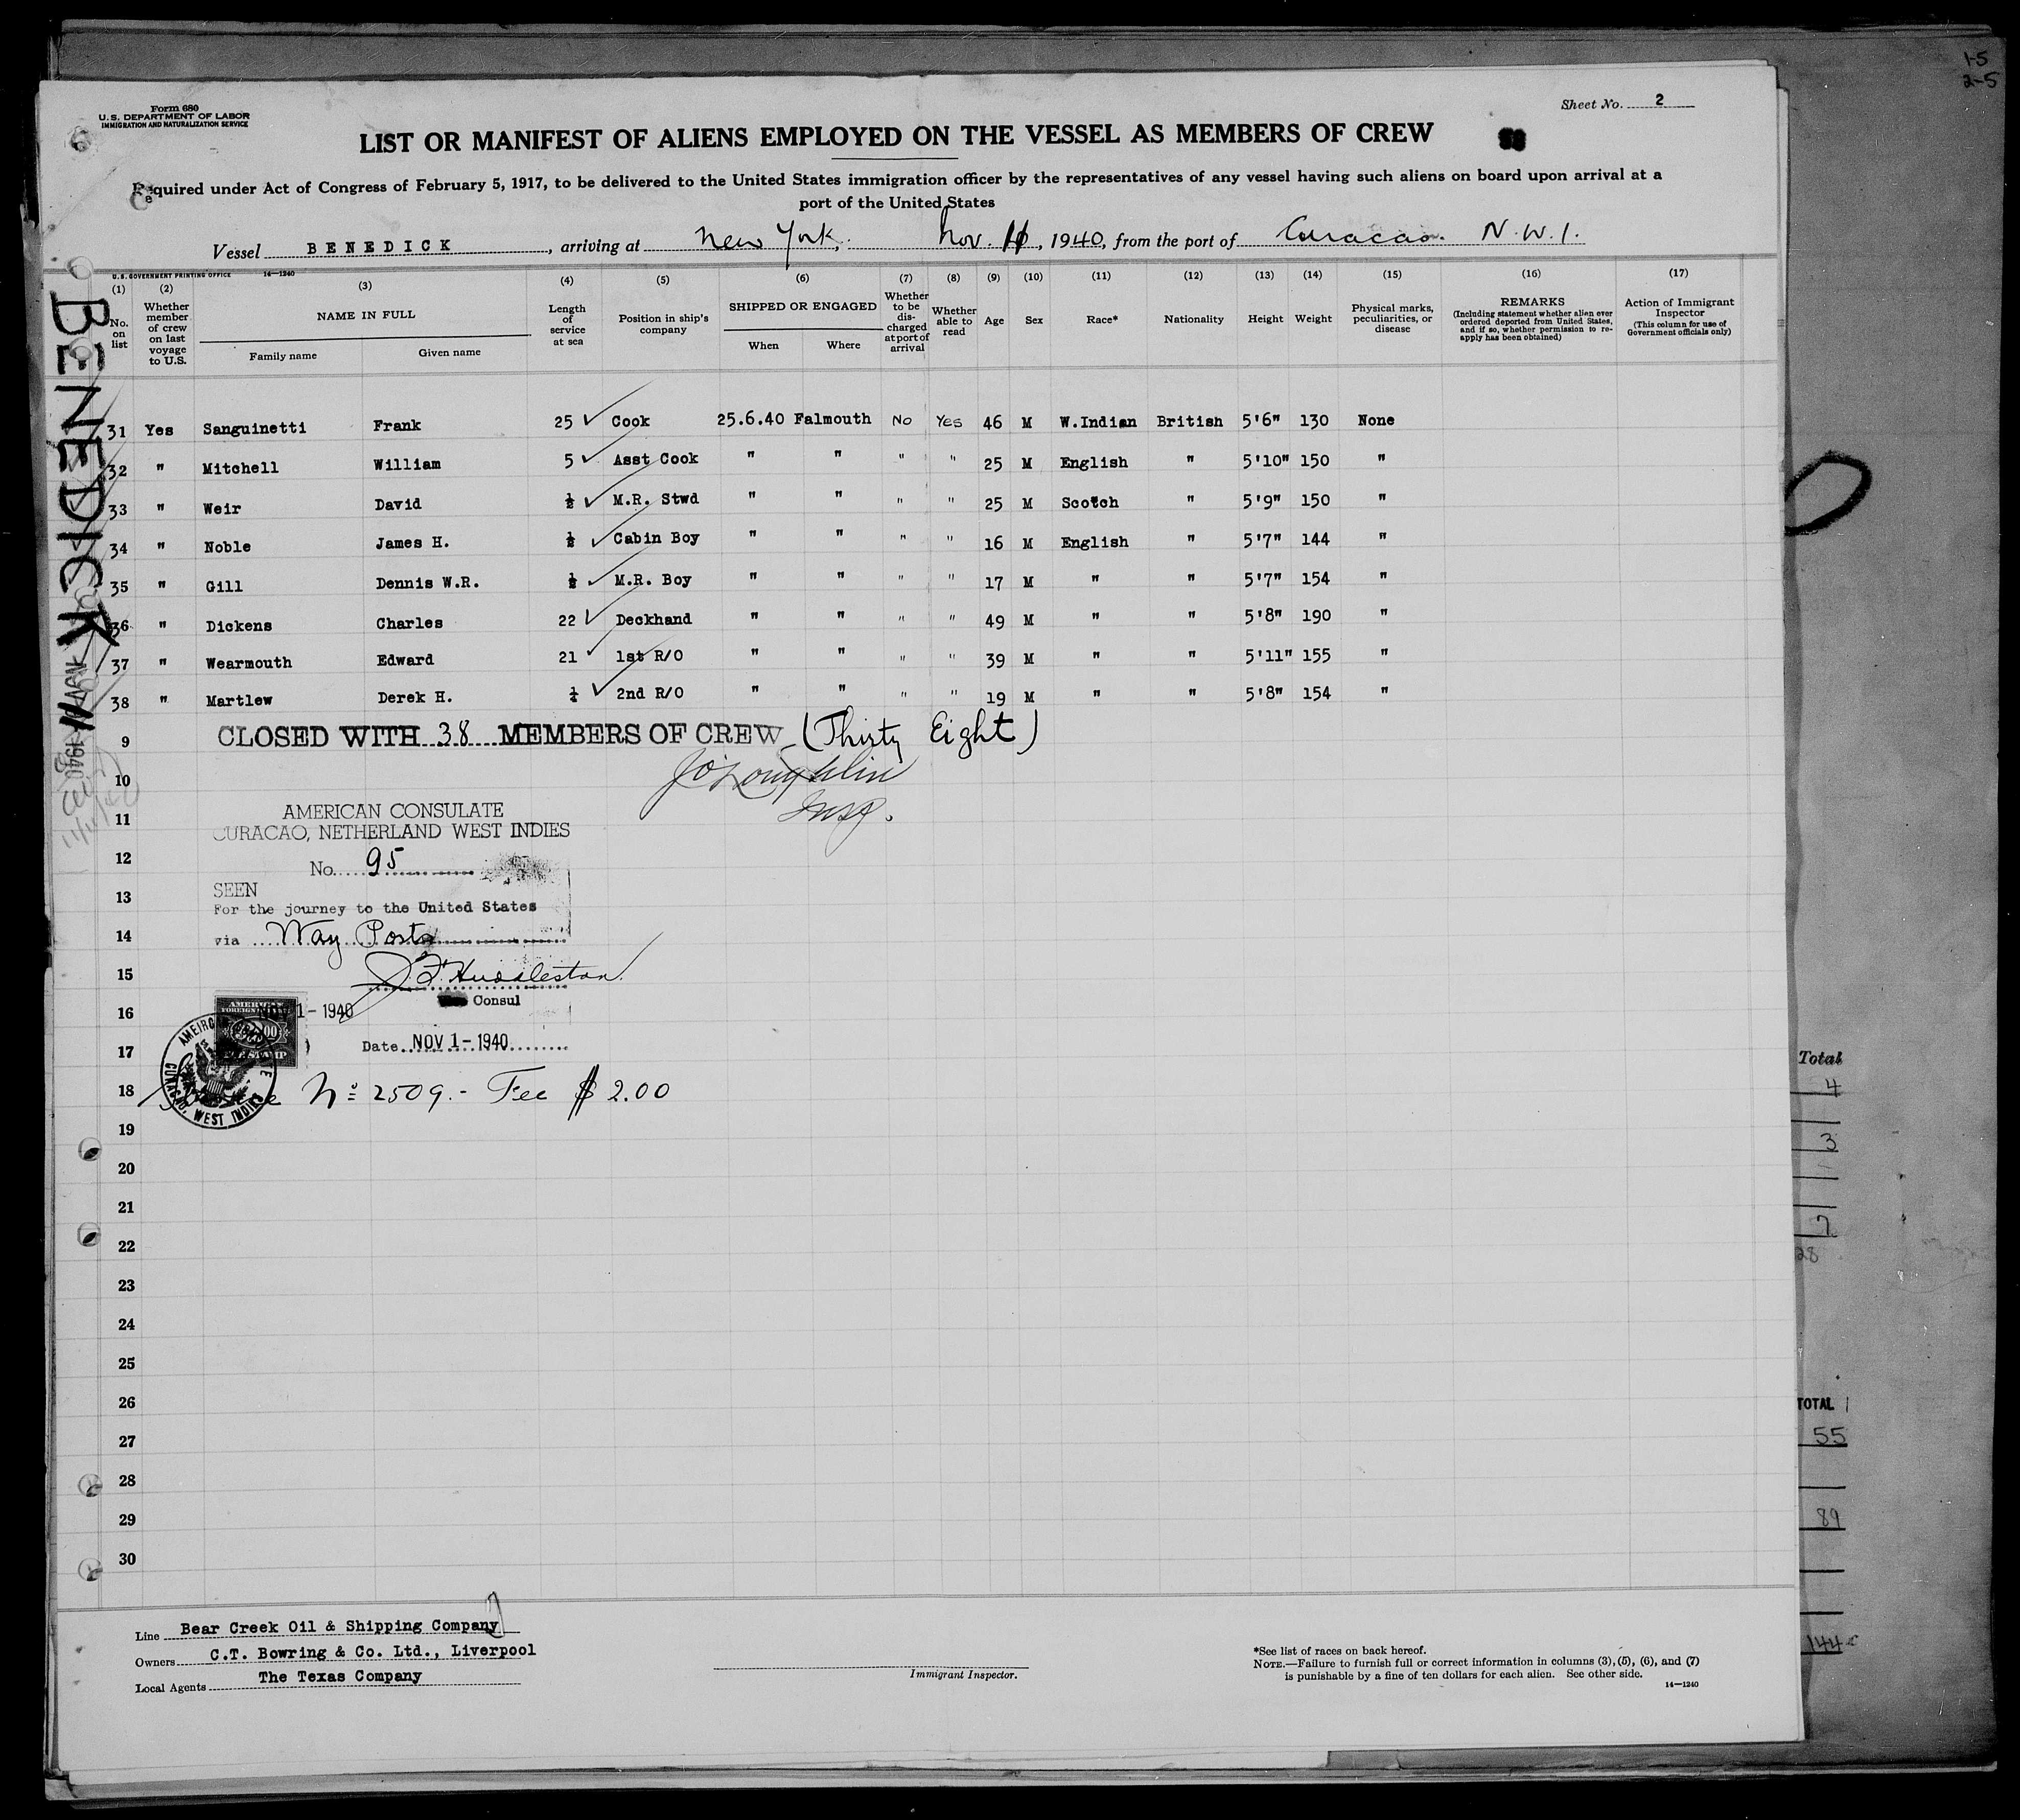 1-5
2-5
Form 680
U.S. DEPARTMENT OF LABOR
IMMIGRATION AND NATURALIZATION SERVICE
Sheet No. 2
LIST OR MANIFEST OF ALIENS EMPLOYED ON THE VESSEL AS MEMBERS OF CREW
Required under Act of Congress of February 5, 1917, to be delivered to the United States immigration officer by the representatives of any vessel having such aliens on board upon arrival at a
port of the United States
Vessel BENEDICK, arriving at New York, Nov. 11, 1940, from the port of Curacao. N.W.I.
U.S. GOVERNMENT PRINTING OFFICE 14—1240
(1) (2) (3) (4) (5) (6) (7) (8) (9) (10) (11) (12) (13) (14) (15) (16) (17)
No. on list
Whether member of crew on last voyage to U.S.
NAME IN FULL
Family name Given name
Length of service at sea
Position in ship's company
SHIPPED OR ENGAGED
When Where
Whether to be discharged at port of arrival
Whether able to read
Age
Sex
Race*
Nationality
Height
Weight
Physical marks, peculiarities, or disease
REMARKS
(Including statement whether alien ever ordered deported from United States, and if so, whether permission to re-apply has been obtained)
Action of Immigrant Inspector
(This column for use of Government officials only)
31 Yes Sanguinetti Frank 25 Cook 25.6.40 Falmouth No Yes 46 M W.Indian British 5'6" 130 None
32 " Mitchell William 5 Asst Cook " " " " 25 M English " 5'10" 150 "
33 " Weir David ½ M.R. Stwd " " " " 25 M Scotch " 5'9" 150 "
34 " Noble James H. ½ Cabin Boy " " " " 16 M English " 5'7" 144 "
35 " Gill Dennis W.R. ½ M.R. Boy " " " " 17 M " " 5'7" 154 "
36 " Dickens Charles 22 Deckhand " " " " 49 M " " 5'8" 190 "
37 " Wearmouth Edward 21 1st R/O " " " " 39 M " " 5'11" 155 "
38 " Martlew Derek H. ½ 2nd R/O " " " " 19 M " " 5'8" 154 "
CLOSED WITH 38 MEMBERS OF CREW (Thirty Eight)
J O'Loughlin
Insp.
9
10
11
12
13
14
15
16
17
18
19
20
21
22
23
24
25
26
27
28
29
30
AMERICAN CONSULATE
CURACAO, NETHERLAND WEST INDIES
No. 95
SEEN
For the journey to the United States
via Way Ports
J.F. Huddleston
Consul
1-1940
Date NOV 1-1940
No 2509.- Fee $2.00
CURACAO, WEST INDIES
BENEDICK
NOV 11 1940
Total
4
3
7
28
TOTAL
55
89
144
Line Bear Creek Oil & Shipping Company
Owners C.T. Bowring & Co. Ltd., Liverpool
Local Agents The Texas Company
Immigrant Inspector.
*See list of races on back hereof.
NOTE.—Failure to furnish full or correct information in columns (3), (5), (6), and (7)
is punishable by a fine of ten dollars for each alien. See other side.
14—1240